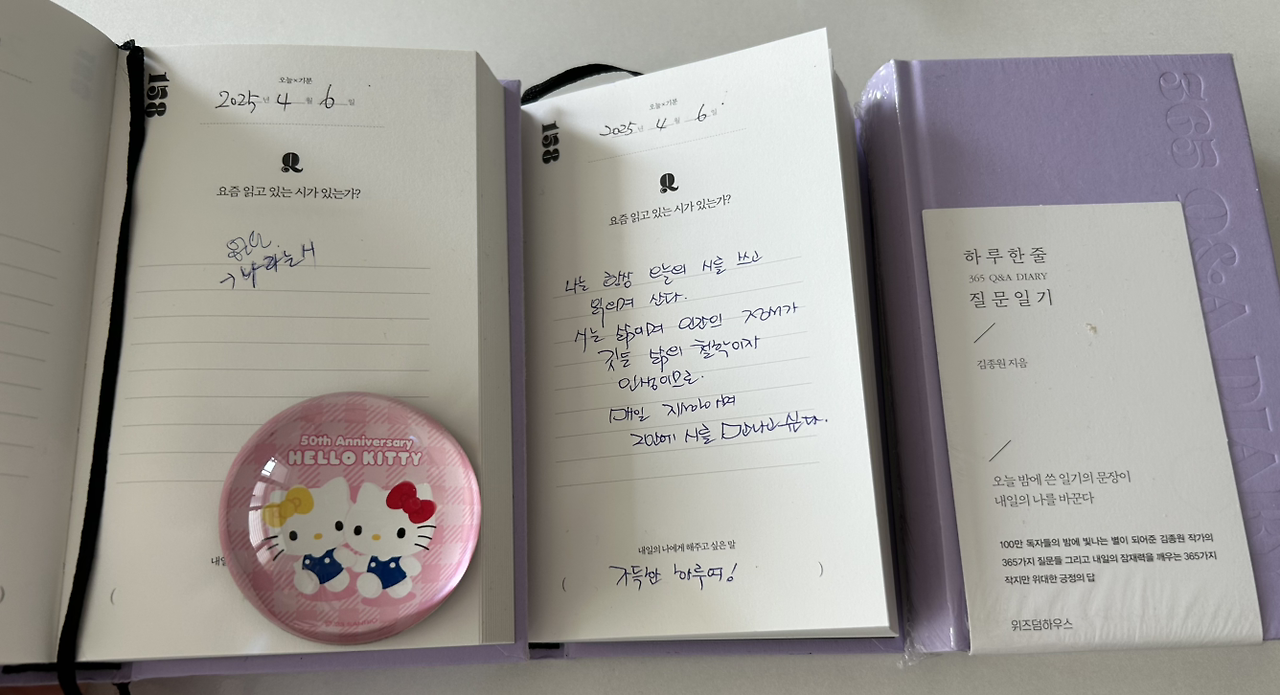 158
오늘×기분
2025년 4월 6일
Q
요즘 읽고 있는 시가 있는가?
50th Anniversary
HELLO KITTY
158
오늘×기분
2025년 4월 6일
Q
요즘 읽고 있는 시가 있는가?
나는 항상 오늘의 시를 쓰고
읽으며 산다.
시는 삶이며 인간의 정서가
깃든 삶의 철학이자
인생이므로.
매일 지쳐도
시를 만나고 싶다.
내일의 나에게 해주고 싶은 말
( 가득한 하루여! )
365 Q&A DIARY
하루 한 줄
365 Q&A DIARY
질문 일기
김종원 지음
오늘 밤에 쓴 일기의 문장이
내일의 나를 바꾼다
100만 독자들의 밤에 빛나는 별이 되어준 김종원 작가의
365가지 질문들 그리고 내일의 잠재력을 깨우는 365가지
작지만 위대한 긍정의 답
위즈덤하우스